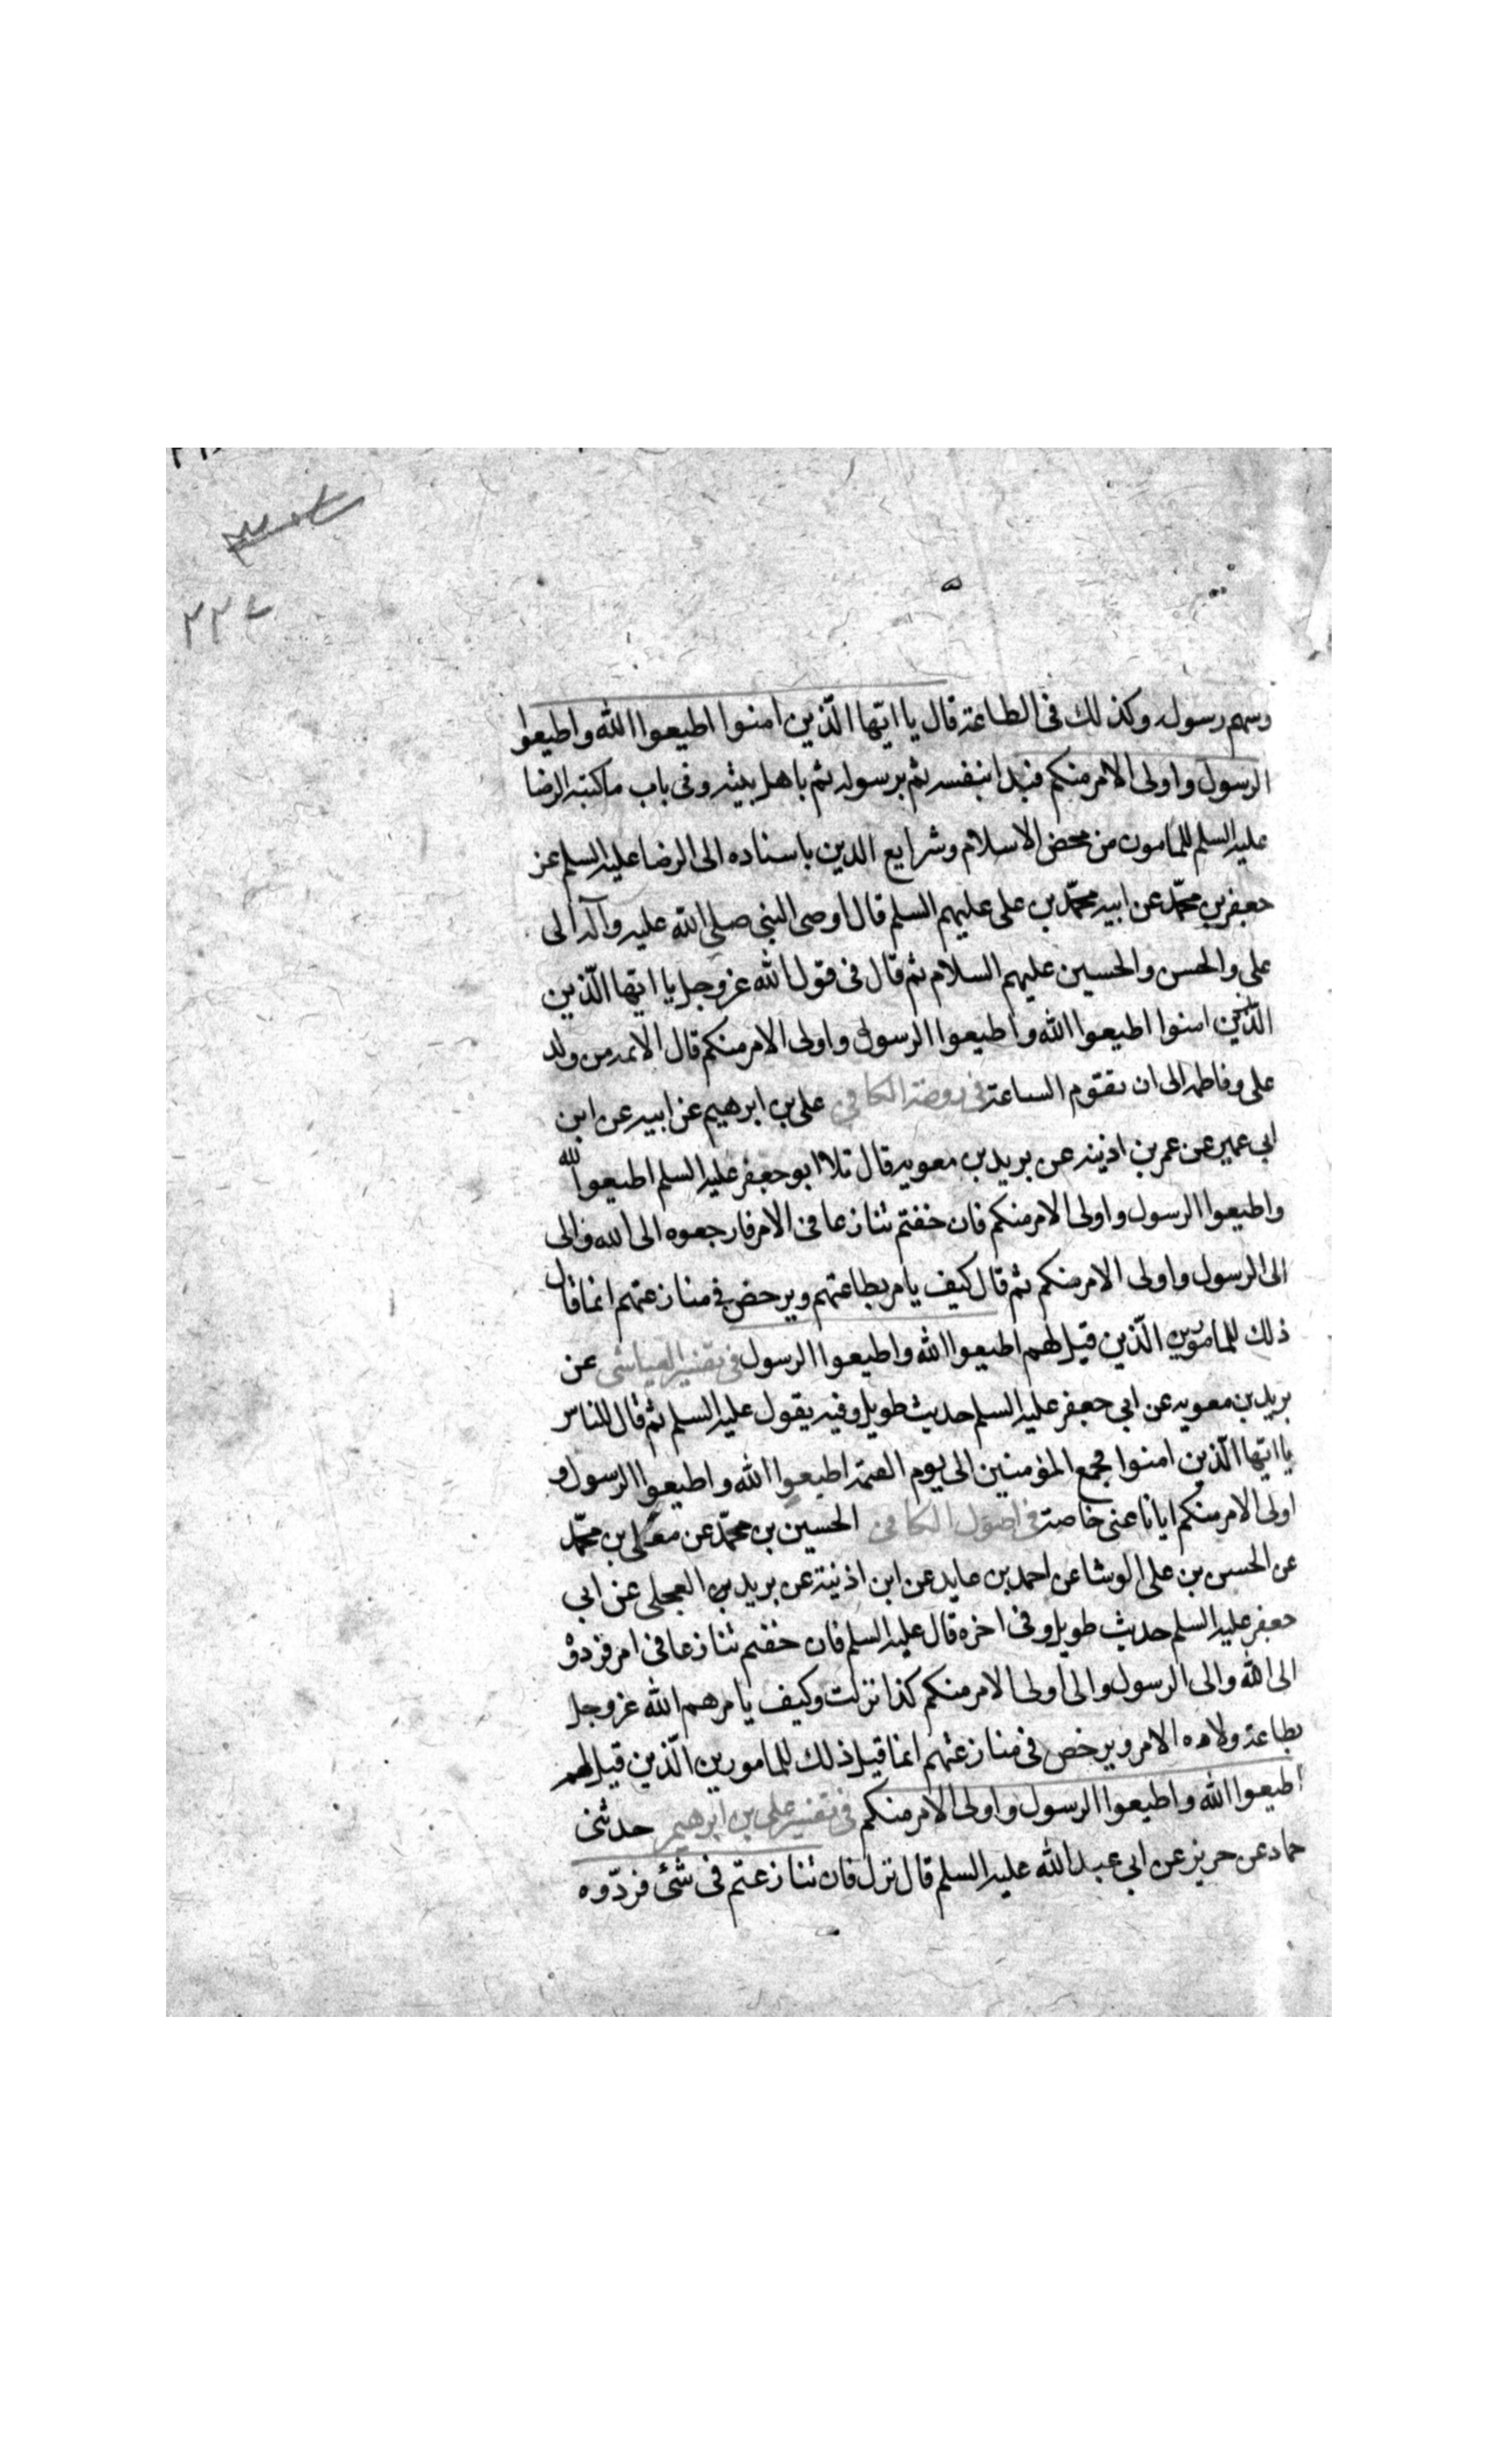 وسهم رسوله وكذلك فى الطاعة قال يا ايها الذين امنوا اطيعوا الله واطيعوا
الرسول واولى الامر منكم فبدا بنفسه ثم برسوله ثم باهل بيته وفى باب ما كتبه الرضا
عليه السلم للمامون من محض الاسلام وشرايع الدين باسناده الى الرضا عليه السلم عن
جعفر بن محمّد عن ابيه محمّد بن على عليهم السلم قال اوصى النبى صلى الله عليه وآله الى
على والحسن والحسين عليهم السلام ثم قال فى قول الله عز وجل يا ايها الذين
الذين امنوا اطيعوا الله واطيعوا الرسول واولى الامر منكم قال الائمه من ولد
على وفاطمه الى ان تقوم الساعة فى روضة الكافى على بن ابرهيم عن ابيه عن ابن
ابى عمير عن عمر بن اذينه عن بريد بن معويه قال تلا ابو جعفر عليه السلم اطيعوا الله
واطيعوا الرسول واولى الامر منكم فان خفتم تنازعا فى الامر فارجعوه الى الله والى
الى الرسول واولى الامر منكم ثم قال كيف يامر بطاعتهم ويرخص فى منازعتهم انما قال
ذلك للمامورين الّذين قيل لهم اطيعوا الله واطيعوا الرسول فى تفسير العياشى عن
بريد بن معويه عن ابى جعفر عليه السلم حديث طويل وفيه يقول عليه السلم ثم قال للناس
يا ايها الّذين امنوا فجمع المؤمنين الى يوم القيمة اطيعوا الله واطيعوا الرسول و
اولى الامر منكم ايانا عنى خاصة فى اصول الكافى الحسين بن محمّد عن معلى بن محمّد
عن الحسن بن على الوشا عن احمد بن عايد عن ابن اذنية عن بريد بن العجلى عن ابى
جعفر عليه السلم حديث طويل وفى اخره قال عليه السلم فان خفتم تنازعا فى امر فردوه
الى الله والى الرسول والى اولى الامر منكم كذا نزلت وكيف يامرهم الله عز وجل
بطاعة ولاه الامر ويرخص فى منازعتهم انما قيل ذلك للمامورين الّذين قيل لهم
اطيعوا الله واطيعوا الرسول واولى الامر منكم فى تفسير على بن ابرهيم حدثنى
حماد عن حريز عن ابى عبد الله عليه السلم قال نزل فان تنازعتم فى شئ فردّوه